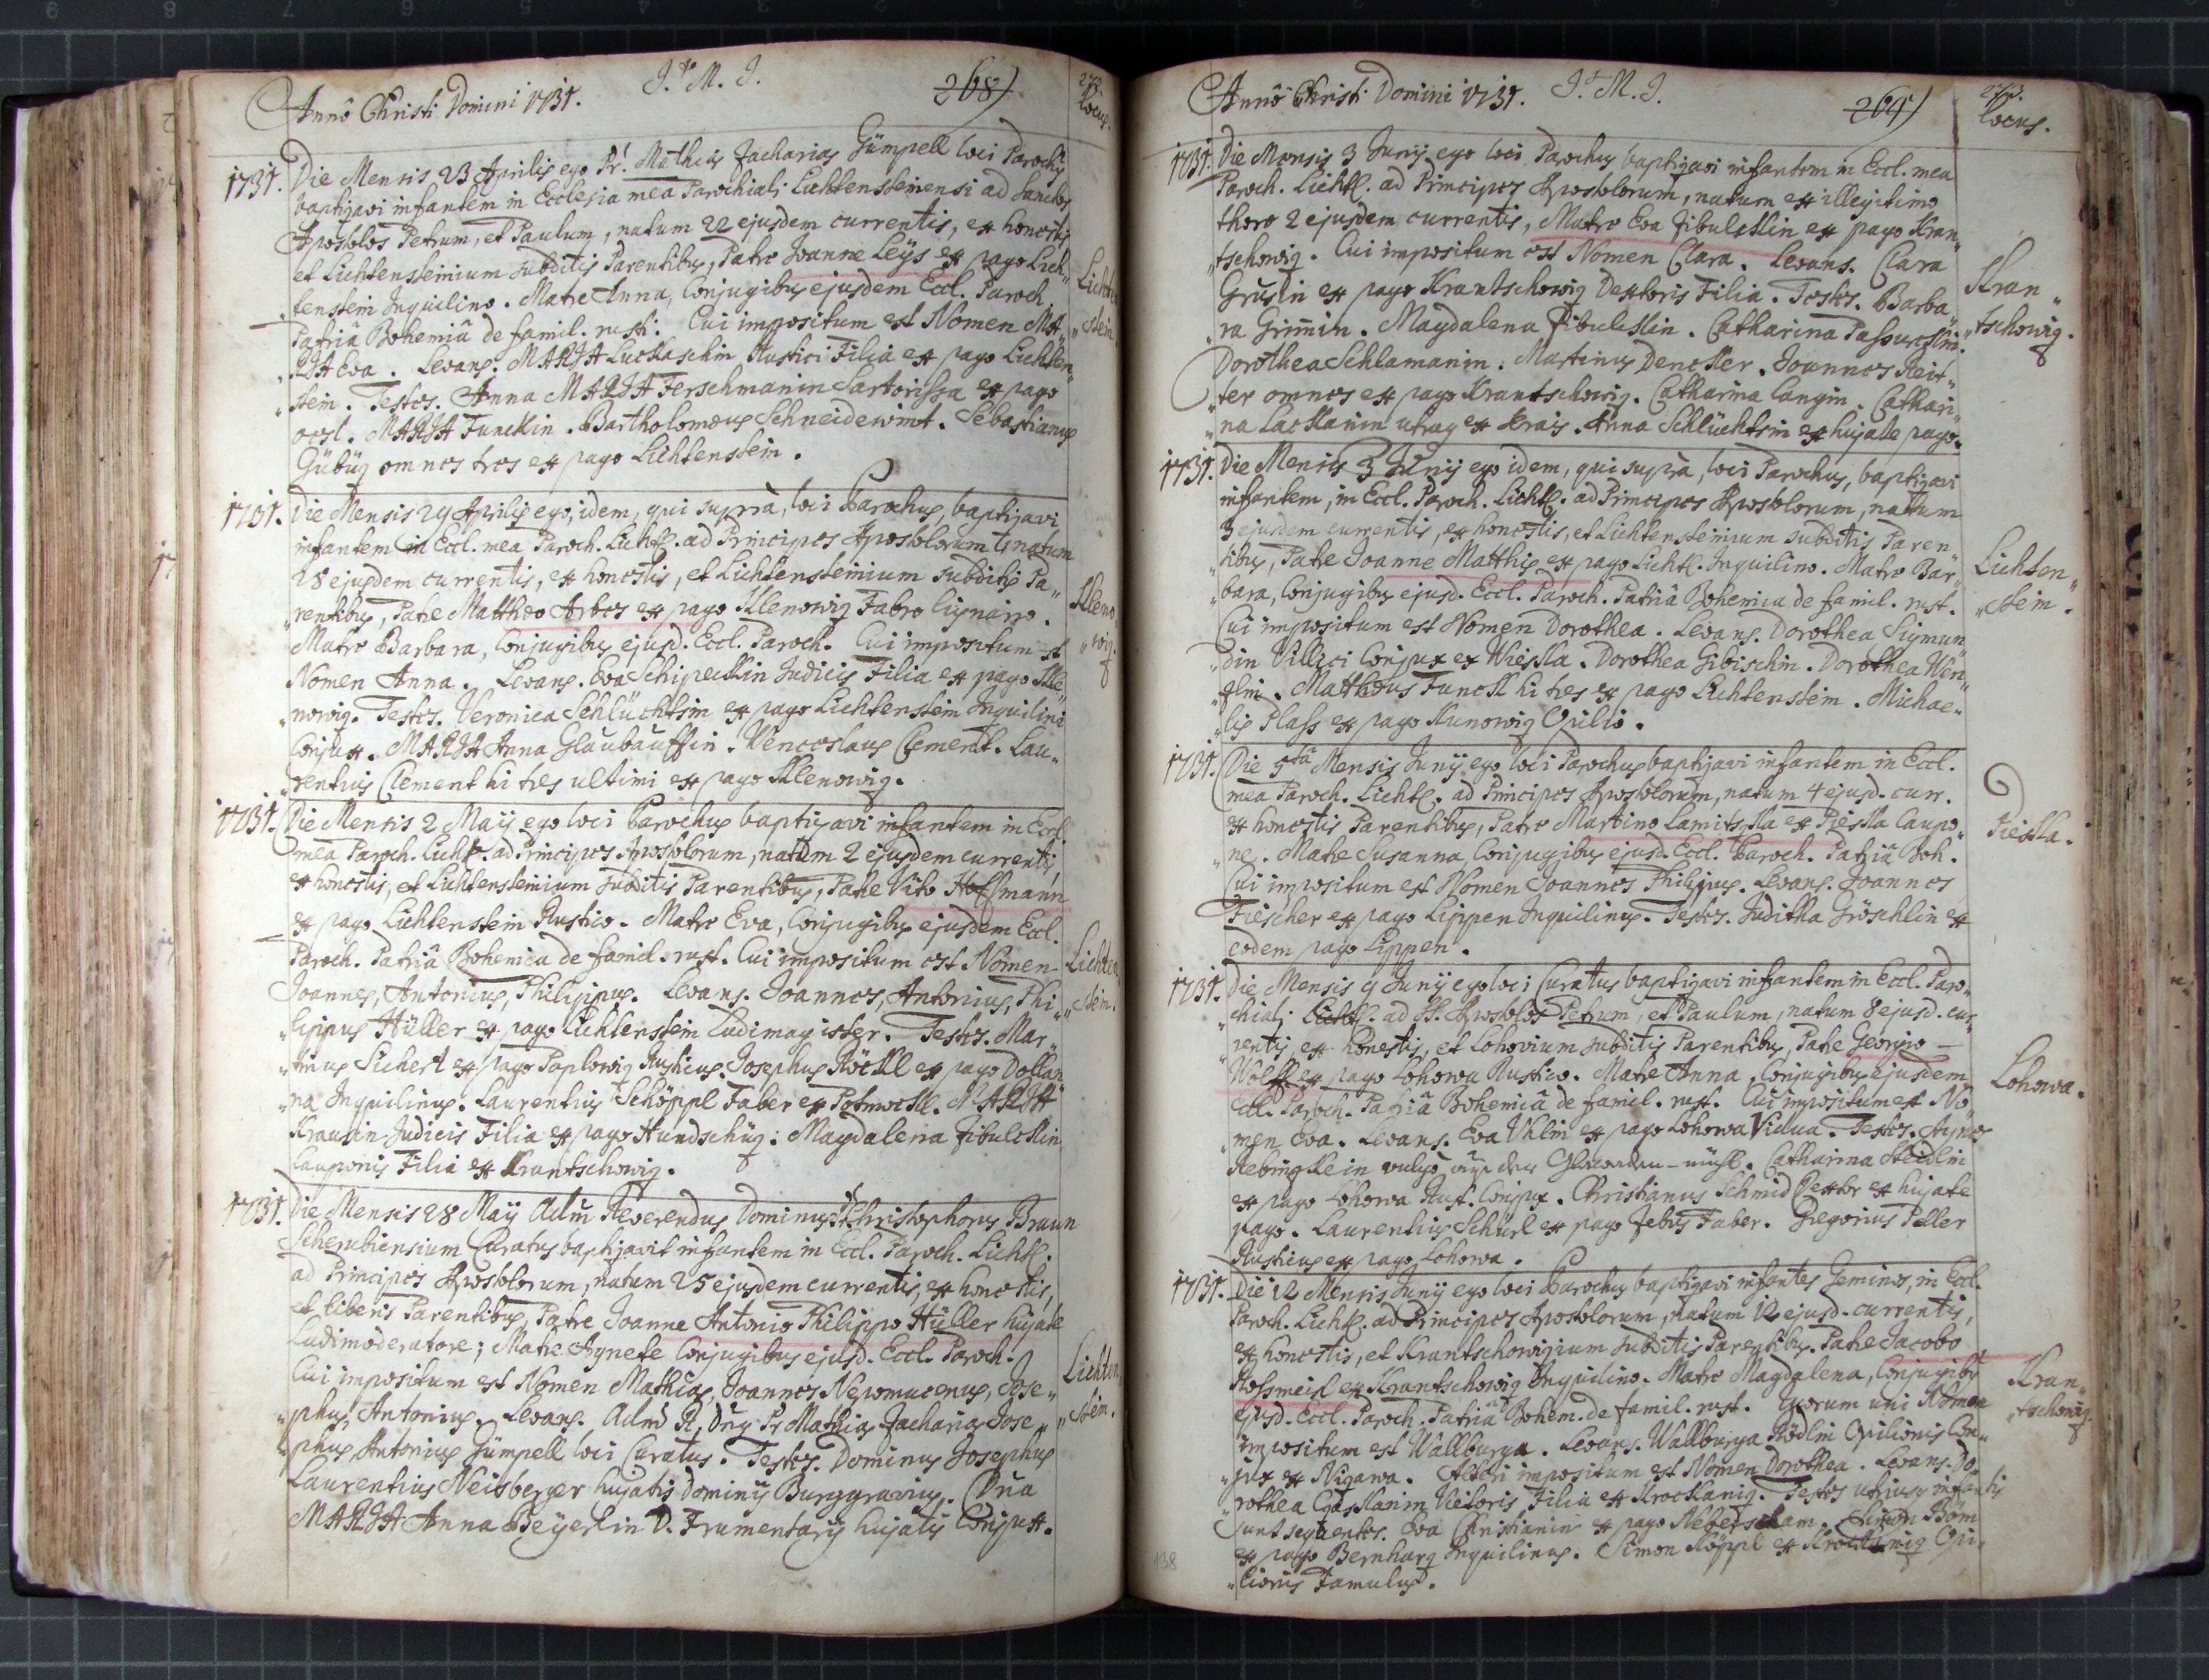 Annô Christi Domini 1731. J. M. J. 268)
Locus.
1731. Die Mensis 23 Aprilis ego Pr. Mathias Zacharias Gümpell loci Parochus
baptizavi infantem in Ecclesia mea Parochiali Lichtensteinensi ad Sanctos
Apostolos Petrum, et Paulum, natum 22 ejusdem currentis, ex honestis
et Lichtensteinium subditis Parentibus, Patre Joanne Leÿs ex pago Lich„
„tenstein Inquilino. Matre Anna, Conjugibus ejusdem Eccl. Paroch.
Patriâ Bohemiâ de famil. rusti: Cui impositum est Nomen MA„
„RIA Eva. Levans. MARIA Luckaschin Rustici Filia ex pago Lichten„
„stein. Testes. Anna MARIA Ferschmanin Sartorissa ex pago
MARIA Funckin. Bartholomæus Schneidewint. Sebastianus
Gübüz omnes tres ex pago Lichtenstein.
Lichten„
„stein.
1731. Die Mensis 29 Aprilis ego, idem, qui suprà, loci Parochus, baptizavi
infantem in Eccl. mea Paroch. Licht. ad Principes Apostolorum natum
28 ejusdem currentis, ex honestis, et Lichtensteinium subditis Pa„
„rentibus, Patre Matthæo Arbes ex pago Klenowiz Fabro lignario.
Matre Barbara, Conjugibus ejusd. Eccl. Paroch. Cui impositum est
Nomen Anna. Levans. Eva Schipeckin Judicis Filia ex pago Kle„
„nowiz. Testes. Veronica Schlüchtsin ex pago Lichtenstein Inquilini
Conjux. MARIA Anna Glaubauffin. Wenceslaus Clement. Lau„
„rentius Clement hi tres ultimi ex pago Klenowiz.
Kleno„
„wiz.
1731. Die Mensis 2 Maÿ ego loci Parochus baptizavi infantem in Eccl.
mea Paroch. Licht. ad Principes Apostolorum, natum 2 ejusdem currentis,
ex honestis, et Lichtensteinium subditis Parentibus, Patre Vito Hoffmann
ex pago Lichtenstein Rustico. Matre Eva, Conjugibus ejusdem Eccl.
Paroch. Patriâ Bohemica de famil. rust. Cui impositum est Nomen
Joannes, Antonius, Philippus. Levans. Joannes, Antonius, Phi„
„lippus Hüller ex pago Lichtenstein Ludimagister. Testes. Mar„
„tinus Sichert ex pago Paplowiz Rusticus. Josephus Röckl ex pago Dollan
„na Inquilinus. Laurentius Schöppl Faber ex Potwockl. MARIA
Krausin Judicis Filia ex pago Hundschüz: Magdalena Zibulckin
Cauponis Filia ex Krantschowiz.
Lichten„
„stein.
1731. Die Mensis 28 Maÿ Adm Reverendus Dominus Christophorus Braun
Scherubiensium Curatus baptizavit infantem in Eccl. Paroch. Licht.
ad Principes Apostolorum, natum 25 ejusdem currentis, ex honestis,
et liberis Parentibus, Patre Joanne Antonio Philippo Hüller hujate
Ludimoderatore; Matre Agnete Conjugibus ejusd. Eccl. Paroch.
Cui impositum est Nomen Mathias, Joannes Nepomucenus, Jose„
„phus, Antonius. Levans. Adm R. Dnus Pr Mathias Zacharias Jose„
„phus Antonius Gümpell loci Curatus. Testes. Dominus Josephus
Laurentius Neisberger hujatis Dominÿ Burggravius. Dna
MARIA Anna Beÿerlin D. Frumentarÿ hujatis Conjux.
Lichten„
„stein.
Annô Christi Domini 1731. J. M. J. 269)
273.
Locus.
1731. Die Mensis 3 Junÿ ego loci Parochus baptizavi infantem in Eccl. mea
Paroch. Licht. ad Principes Apostolorum, natum ex illegitimo
thoro 2 ejusdem currentis, Matre Eva Zibulckin ex pago Kran„
„tschowiz. Cui impositum est Nomen Clara. Levans. Clara
Gruslin ex pago Krantschowiz Textoris Filia. Testes. Barba„
„ra Grimin. Magdalena Zibulckin. Catharina
Dorothea Schlamanin. Martinus Denckler. Joannes Reit„
„ter omnes ex pago Krantschowiz. Catharina Langin. Cathari„
„na Lackanin utraq ex Krais. Anna Schlüchtsin ex hujate pago.
Kran„
„tschowiz.
1731. Die Mensis 3 Junÿ ego idem, qui suprà, loci Parochus, baptizavi
infantem, in Eccl. Paroch. Licht. ad Principes Apostolorum, natum
3 ejusdem currentis, ex honestis, et Lichtensteinium subditis Paren„
„tibus, Patre Joanne Matthis ex pago Licht. Inquilino. Matre Bar„
„bara, Conjugibus ejusd. Eccl. Paroch. Patriâ Bohemica de famil. rust.
Cui impositum est Nomen Dorothea. Levans. Dorothea Sigmun„
„din Villici Conjux ex Wieska. Dorothea Gibischin. Dorothea Wen„
„zlin. Matthæus Funckl hi tres ex pago Lichtenstein. Michae„
„lis Plass ex pago Kunowiz Opilio.
Lichten„
„stein.
1731. Die 5ta Mensis Junÿ ego loci Parochus baptizavi infantem in Eccl.
mea Paroch. Licht. ad Principes Apostolorum, natum 4 ejusd. curr.
ex honestis Parentibus, Patre Martino Lamitzka ex Pieska Caupo„
„ne. Matre Susanna, Conjugibus ejusd. Eccl. Paroch. Patriâ Boh.
Cui impositum est Nomen Joannes Philippus. Levans. Joannes
Fiescher ex pago Lippen Inquilinus. Testes. Juditha Gröschlin ex
eodem pago Lippen.
Pieska.
1731. Die Mensis 9 Junÿ ego loci Curatus baptizavi infantem in Eccl. Paro„
„chiali Licht. ad SS. Apostolos Petrum, et Paulum, natum 8 ejusd. cur„
„rentis, ex honestis, et Lohovium subditis Parentibus, Patre Georgio
Wolff ex pago Lohowa Rustico. Matre Anna, Conjugibus ejusdem
Eccl. Paroch. Patriâ Bohemiâ de famil. rust. Cui impositum est No„
„men Eva. Levans. Eva Uhlin ex pago Lohowa Vidua. Testes. Agnes
Rebingklein vulgo Catharina Steidlin
ex pago Lohowa Rust. Conjux. Christianus Schmid Textor ex hujate
pago. Laurentius Schürl ex pago Jebus Faber. Gregorius Peller
Rusticus ex pago Lohowa.
Lohowa.
1731. Die 12 Mensis Junÿ ego loci Parochus baptizavi infantes Geminos, in Eccl.
Paroch. Licht. ad Principes Apostolorum, natum 12 ejusd. currentis,
ex honestis, et Krantschowizium subditis Parentibus. Patre Jacobo
Rossmeisl ex Krantschowiz Inquilino. Matre Magdalena, Conjugibus
ejusd. Eccl. Paroch. Patriâ Bohem. de famil. rust. Quorum uni Nomen
impositum est Wallburga. Levans. Wallburga Rödlin Opilionis Con„
„jux ex Nigawa. Alteri impositum est Nomen Dorothea. Levans. Do„
„rothea Vietoris Filia ex Krockaniz. Testes utriusq infantis
sunt sequentes. Eva Christianin ex pago Nebersdam. Simon Böm
ex pago Bernharz Inquilinus. Simon Köppl ex Krockaniz Opi„
„lionis Famulus.
Kran„
„tschowiz.
138